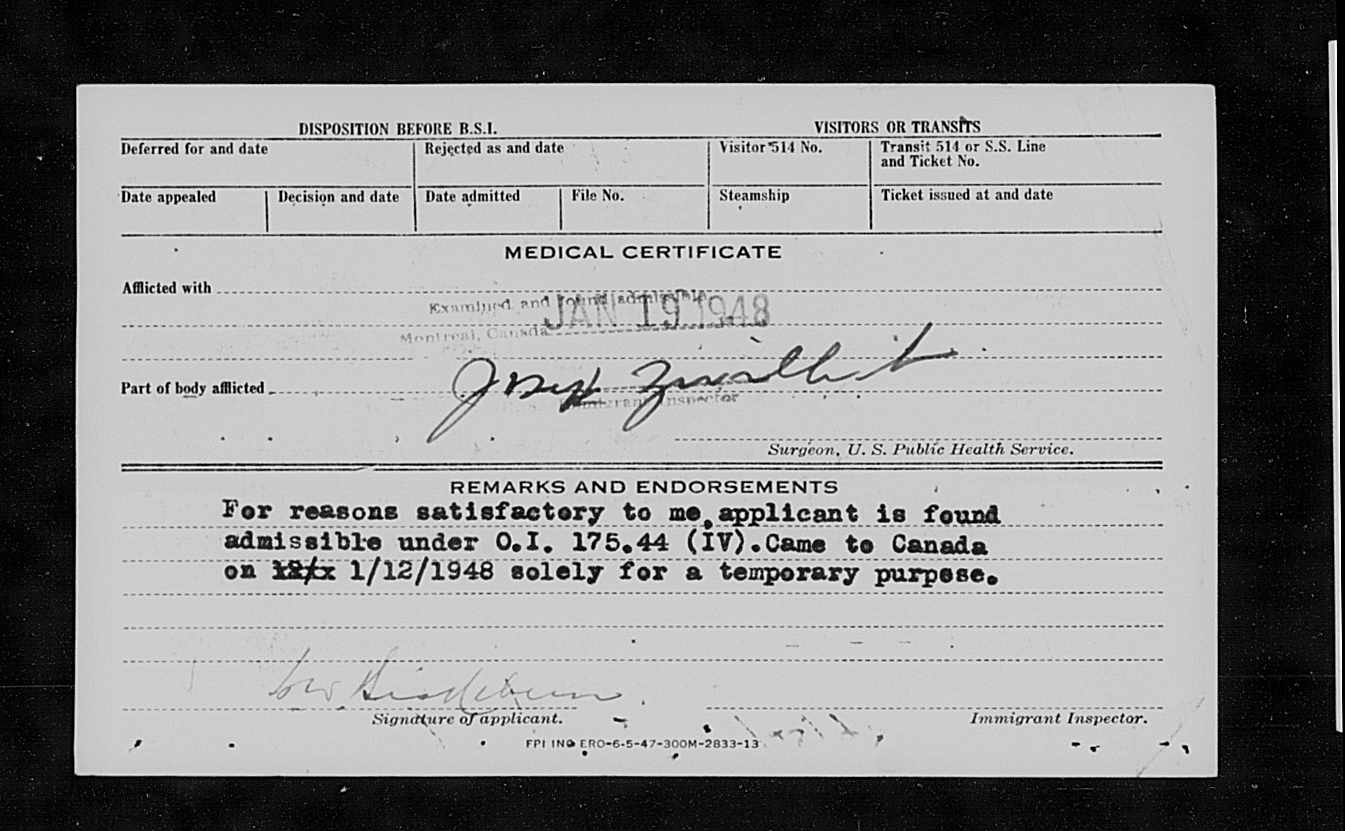 DISPOSITION BEFORE B.S.I. VISITORS OR TRANSITS
Deferred for and date Rejected as and date Visitor 514 No. Transit 514 or S.S. Line
and Ticket No.
Date appealed Decision and date Date admitted File No. Steamship Ticket issued at and date
MEDICAL CERTIFICATE
Afflicted with
Examined and found admissible
JAN 19 1948
Montreal, Canada
Part of body afflicted Joseph
Immigrant Inspector
Surgeon, U. S. Public Health Service.
REMARKS AND ENDORSEMENTS
For reasons satisfactory to me, applicant is found
admissible under O.I. 175.44 (IV). Came to Canada
on 1/12/1948 solely for a temporary purpose.
Signature of applicant. Immigrant Inspector.
FPI INC ERO-6-5-47-300M-2833-13